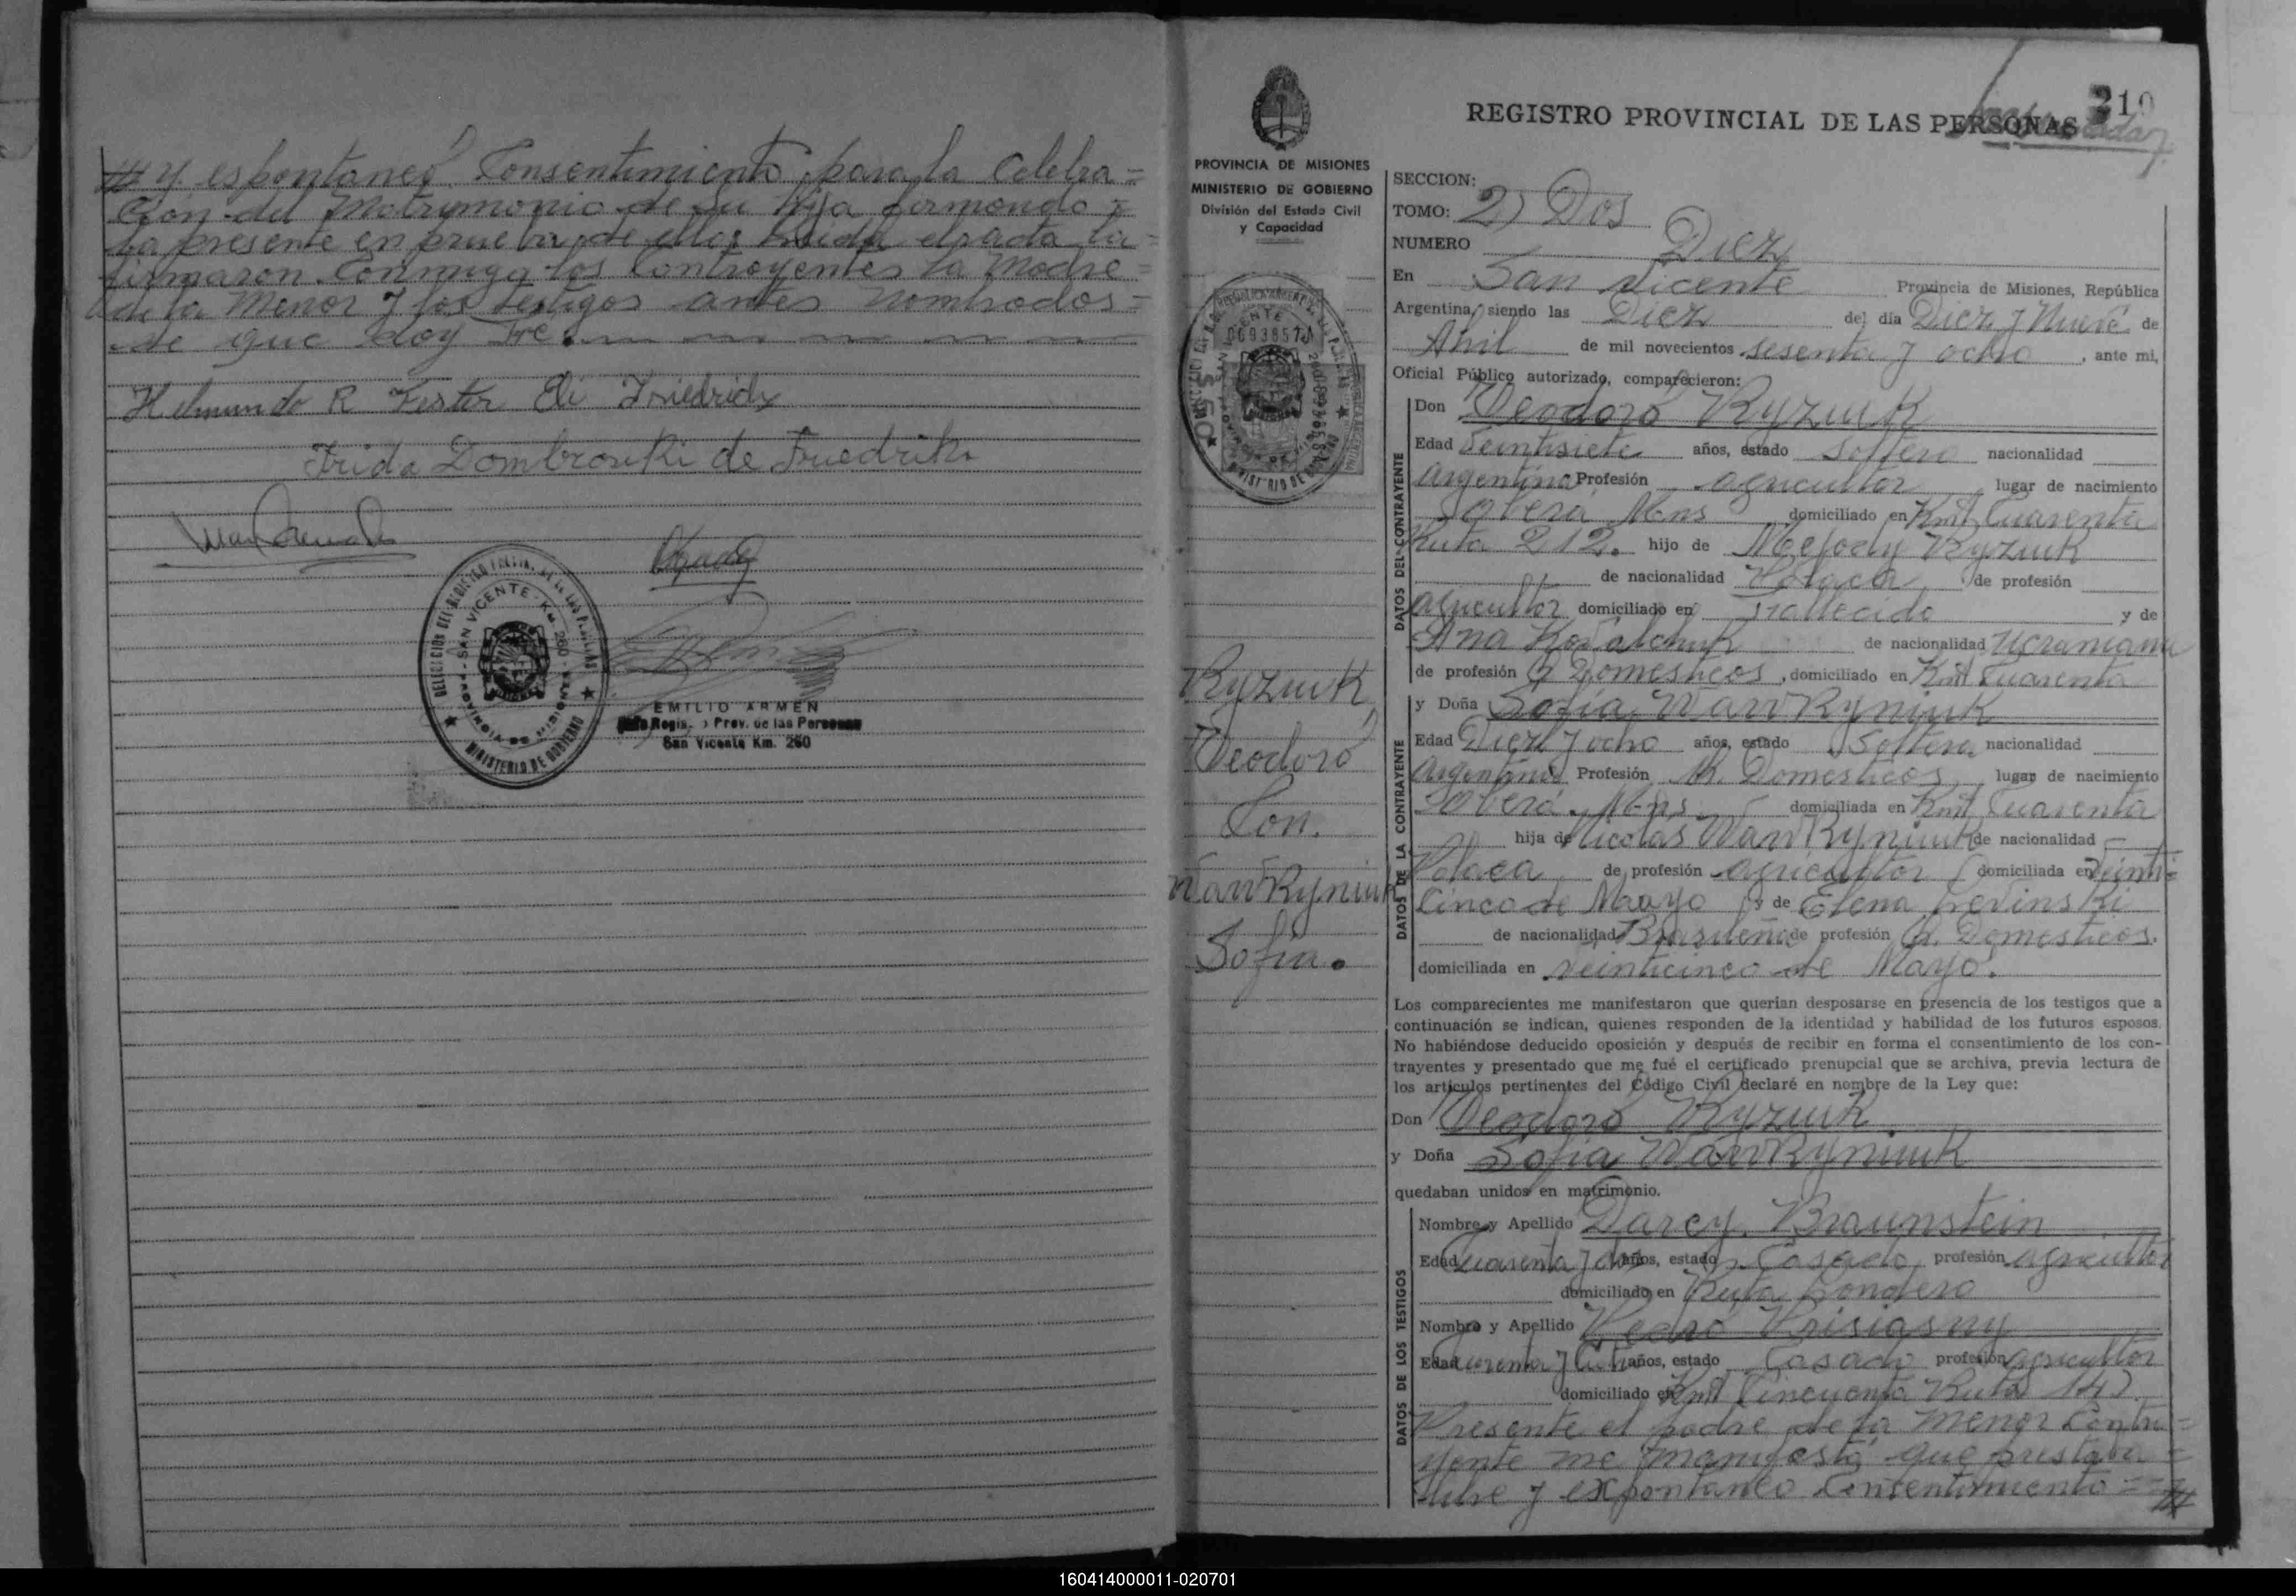 y espontaneo Consentimiento para la Celebra=
ción del Matrimonio de su hija firmando =
la presente en prueba de ello; Leida el acta la =
firmaron Conmigo los Contrayentes la Madre =
de la Menor y los testigos antes nombrados =
de que doy Fe.
Helmundo R Eli Friedrich
Frida Dombrouski de Friedrich
DELEGACION DEL REGISTRO PROVIN. DE LAS PERSONAS
SAN VICENTE - KM. 260 -
PROVINCIA DE MISIONES
MINISTERIO DE GOBIERNO
EMILIO ARMEN
Regis. Prov. de las Personas
San Vicente Km. 260
PROVINCIA DE MISIONES
MINISTERIO DE GOBIERNO
División del Estado Civil
y Capacidad
Ryziuk
Teodoro
Con.
Wawrkyniuk
Sofia.
REGISTRO PROVINCIAL DE LAS PERSONAS
210
SECCION:
TOMO: 2) Dos
NUMERO Diez
En San Vicente Provincia de Misiones, República
Argentina, siendo las Diez del día Diez y Nueve de
Abril de mil novecientos sesenta y ocho, ante mi,
Oficial Público autorizado, comparecieron:
DATOS DEL CONTRAYENTE
Don Teodoro Ryziuk
Edad Veintisiete años, estado Soltero nacionalidad
Argentino Profesión agricultor lugar de nacimiento
Oberá Mns domiciliado en Kmt Cuarenta
Ruta 212. hijo de Ryziuk
de nacionalidad Polaca de profesión
agricultor domiciliado en Fallecido y de
Ana Kovalchuk de nacionalidad Ucraniana
de profesión Q Domesticos, domiciliado en Kmt Cuarenta
DATOS DE LA CONTRAYENTE
y Doña Sofia Wawrkyniuk
Edad Diez y ocho años, estado Soltera nacionalidad
Argentina Profesión Q. Domesticos lugar de nacimiento
Oberá Mns domiciliada en Kmt Cuarenta
hija de Nicolas Wawrkyniuk de nacionalidad
Polaca de profesión agricultor domiciliada en Veinti=
Cinco de Mayo y de Elena Levinski
de nacionalidad Brasileña de profesión Q. Domesticos.
domiciliada en Veinticinco de Mayo.
Los comparecientes me manifestaron que querían desposarse en presencia de los testigos que a
continuación se indican, quienes responden de la identidad y habilidad de los futuros esposos.
No habiéndose deducido oposición y después de recibir en forma el consentimiento de los con-
trayentes y presentado que me fué el certificado prenupcial que se archiva, previa lectura de
los artículos pertinentes del Código Civil declaré en nombre de la Ley que:
Don Teodoro Ryziuk
y Doña Sofia Wawrkyniuk
quedaban unidos en matrimonio.
DATOS DE LOS TESTIGOS
Nombre y Apellido Darcy Braunstein
Edad Cuarenta y dos años, estado Casado profesión agricultor
domiciliado en Ruta Londero
Nombre y Apellido Pedro Prisiasny
Edad Cuarenta y años, estado Casado profesión agricultor
domiciliado en Kmt Cincuenta Ruta 14)
Presente el padre de la menor Contra=
yente me manifestó que prestaba =
libre y expontaneo Consentimiento =
160414000011-020701